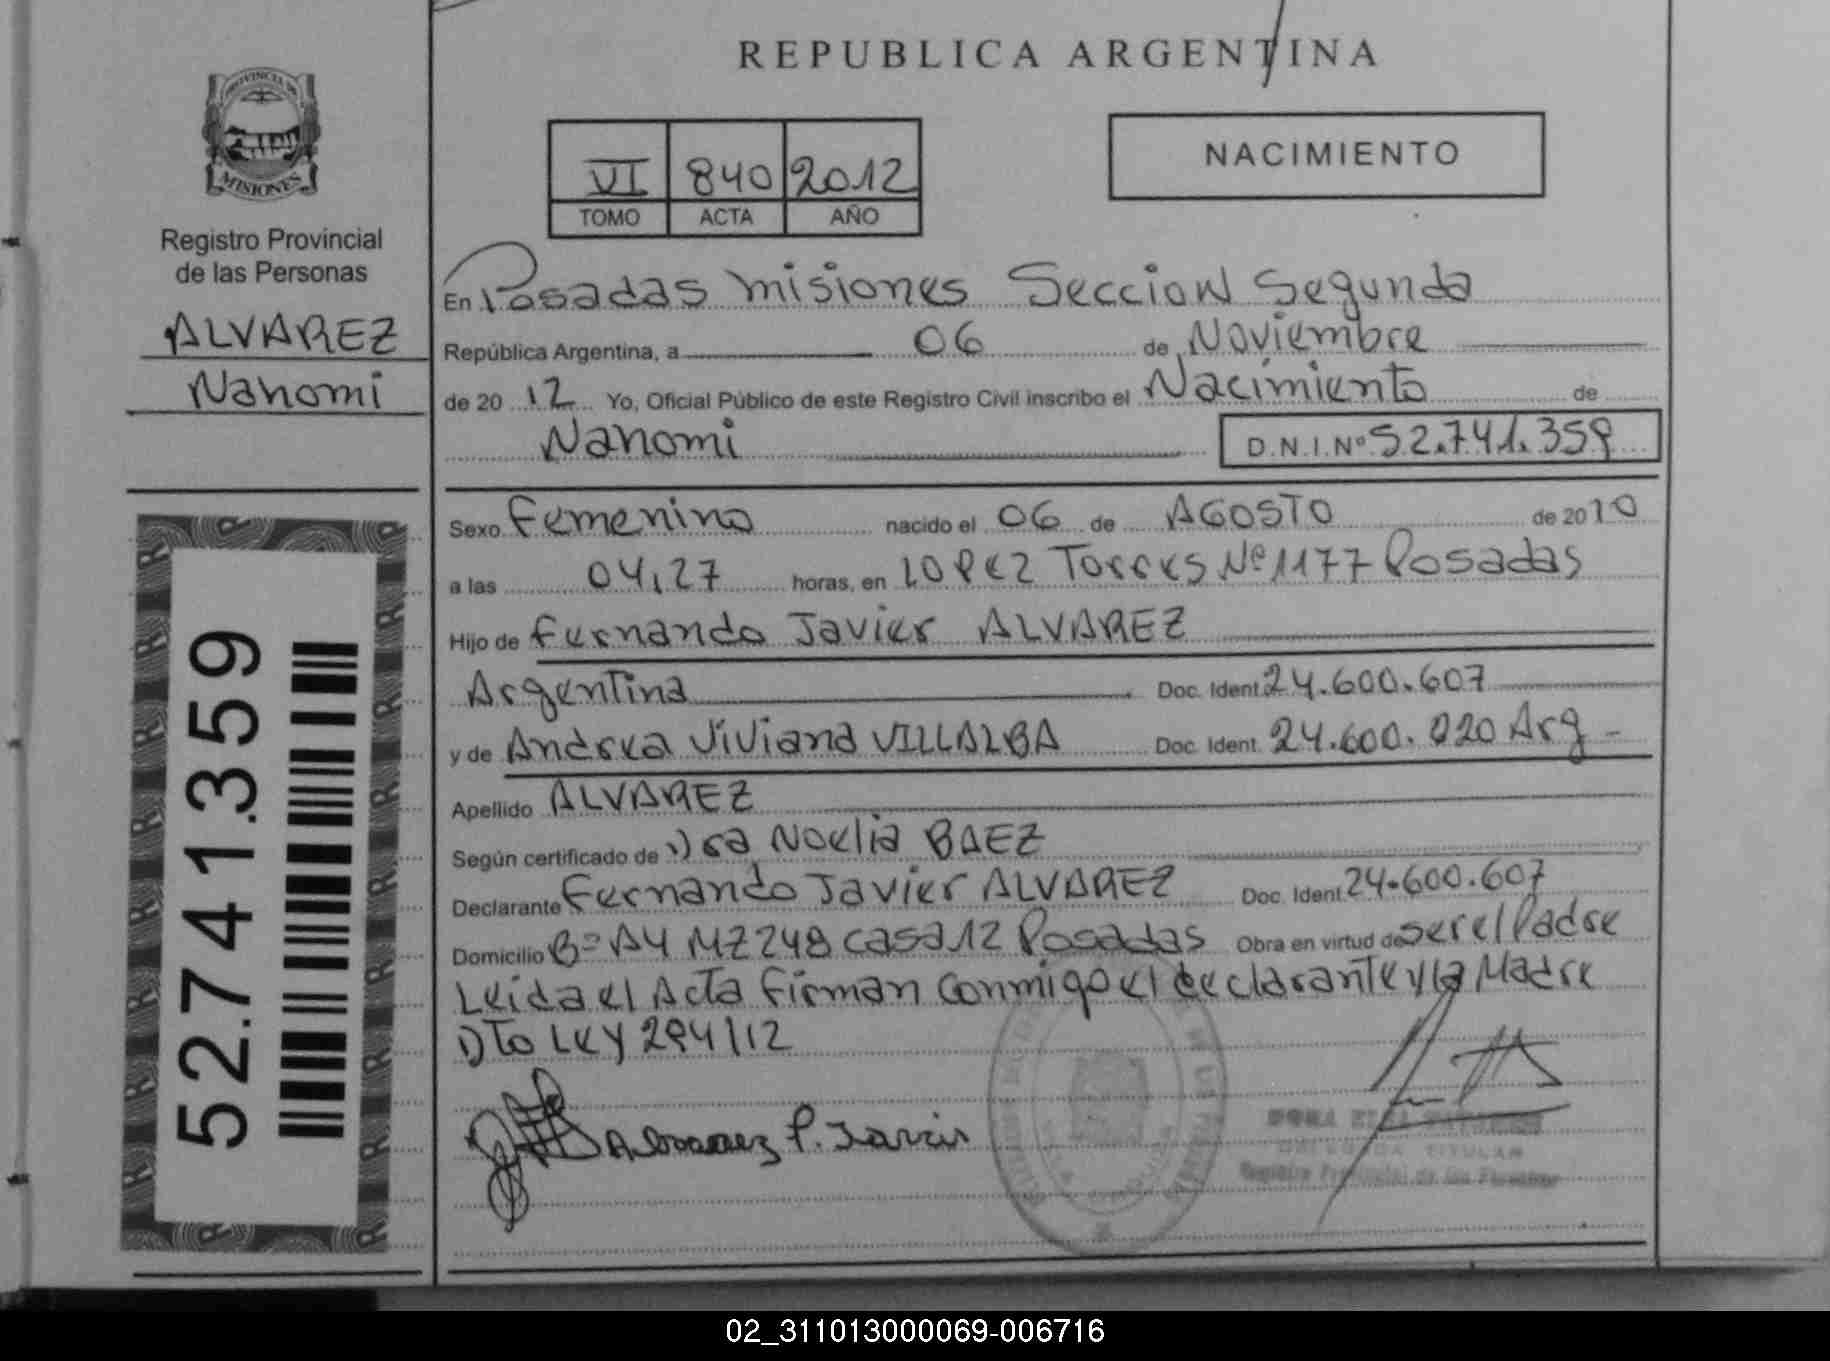 REPUBLICA ARGENTINA
PROVINCIA DE
MISIONES
Registro Provincial
de las Personas
ALVAREZ
Nahomi
52.741.359
VI 840 2012
TOMO ACTA AÑO
NACIMIENTO
En Posadas Misiones Seccion Segunda
República Argentina, a 06 de Noviembre
de 20 12 Yo, Oficial Público de este Registro Civil inscribo el Nacimiento de
Nahomi D.N.I.Nº 52.741.359
Sexo Femenino nacido el 06 de AGOSTO de 2010
a las 04,27 horas, en LOPEZ Torres Nº 1177 Posadas
Hijo de Fernando Javier ALVAREZ
Argentina Doc. Ident. 24.600.607
y de Andrea Viviana VILLALBA Doc. Ident. 24.600.020 Arg -
Apellido ALVAREZ
Según certificado de Dra Noelia BAEZ
Declarante Fernando Javier ALVAREZ Doc. Ident. 24.600.607
Domicilio Bº A4 MZ 248 casa 12 Posadas Obra en virtud de ser el Padre
Leida el Acta Firman Conmigo el declarante y la Madre
Dto LEY 294/12
Alvarez F. Javier
DELEGADA TITULAR
Registro Provincial de las Personas
02_311013000069-006716